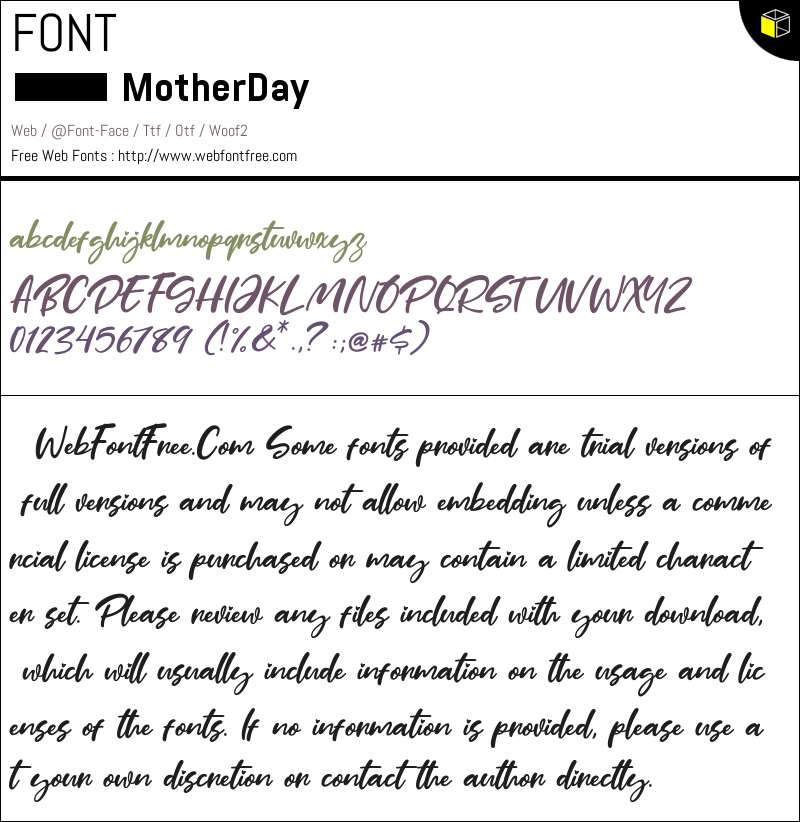 FONT
MotherDay
Web / @Font-Face / Ttf / Otf / Woof2
Free Web Fonts : http://www.webfontfree.com
abcdefghijklmnopqrstuvwxyz
ABCDEFGHIJKLMNOPQRSTUVWXYZ
0123456789 (!%&*.,?:;@#$)
WebFontFree.Com Some fonts provided are trial versions of
full versions and may not allow embedding unless a comme
rcial license is purchased or may contain a limited charact
er set. Please review any files included with your download,
which will usually include information on the usage and lic
enses of the fonts. If no information is provided, please use a
t your own discretion or contact the author directly.